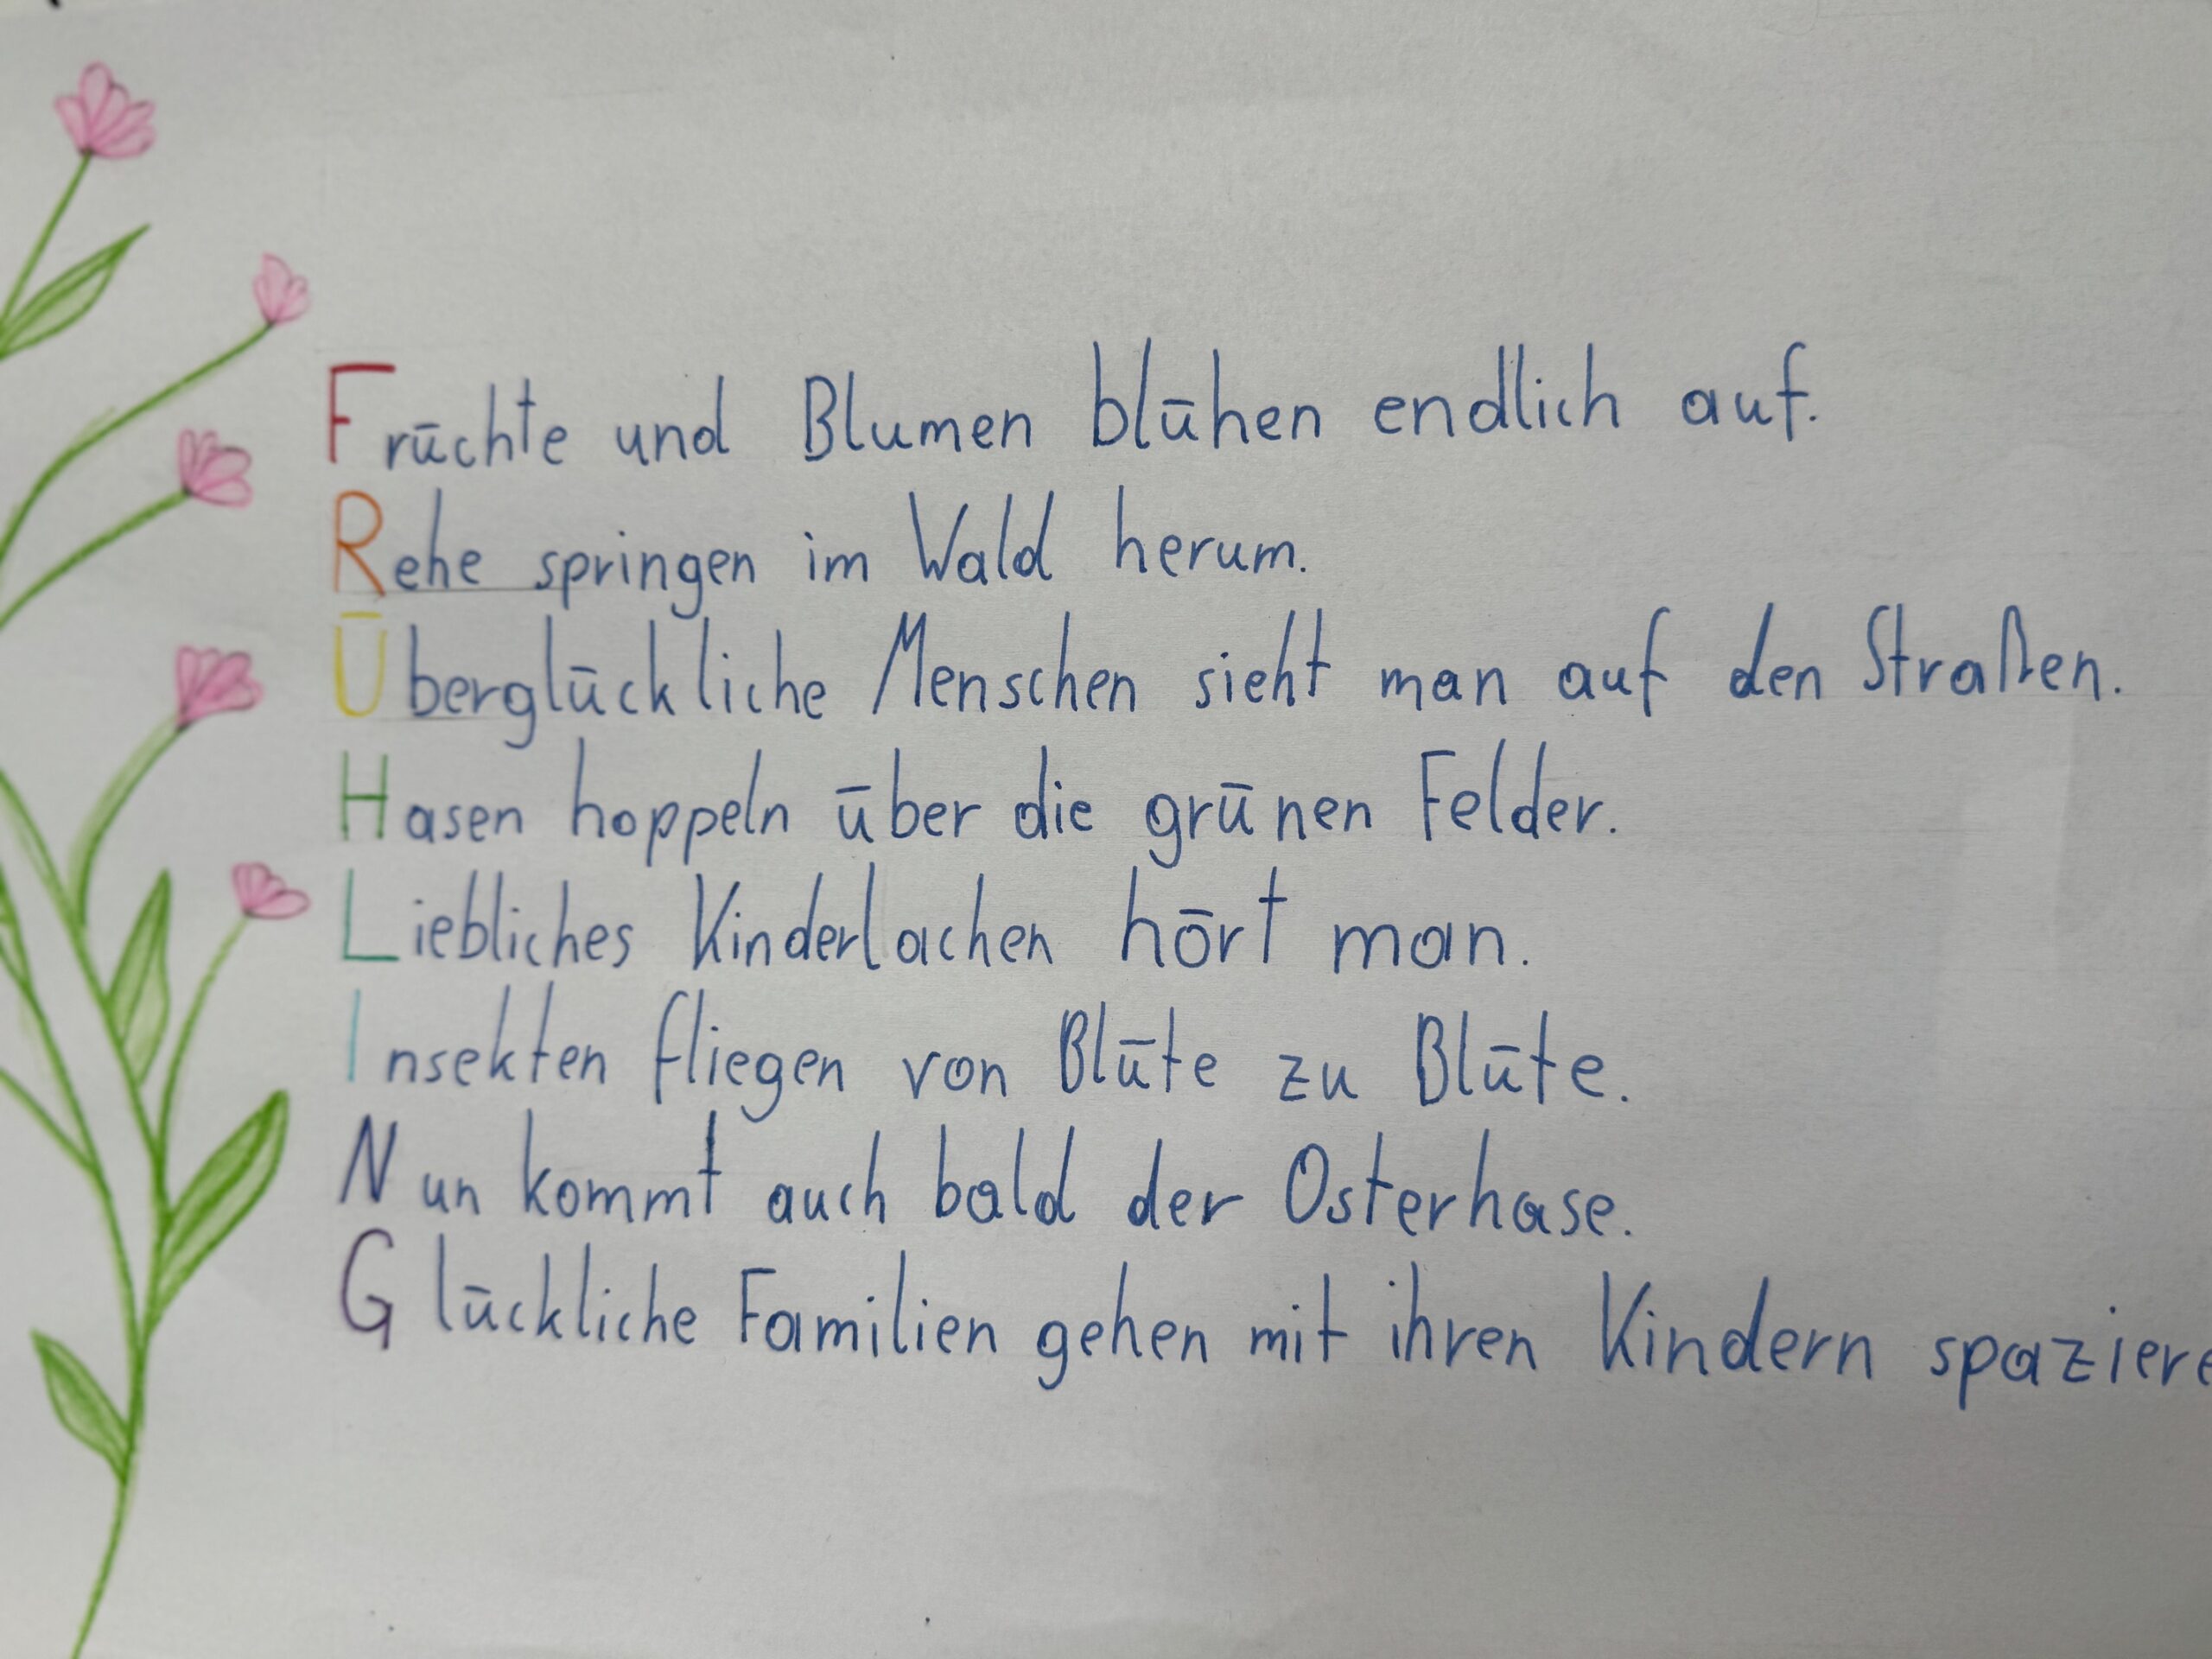 Früchte und Blumen blühen endlich auf.
Rehe springen im Wald herum.
Überglückliche Menschen sieht man auf den Straßen.
Hasen hoppeln über die grünen Felder.
Liebliches Kinderlachen hört man.
Insekten fliegen von Blüte zu Blüte.
Nun kommt auch bald der Osterhase.
Glückliche Familien gehen mit ihren Kindern spaziere